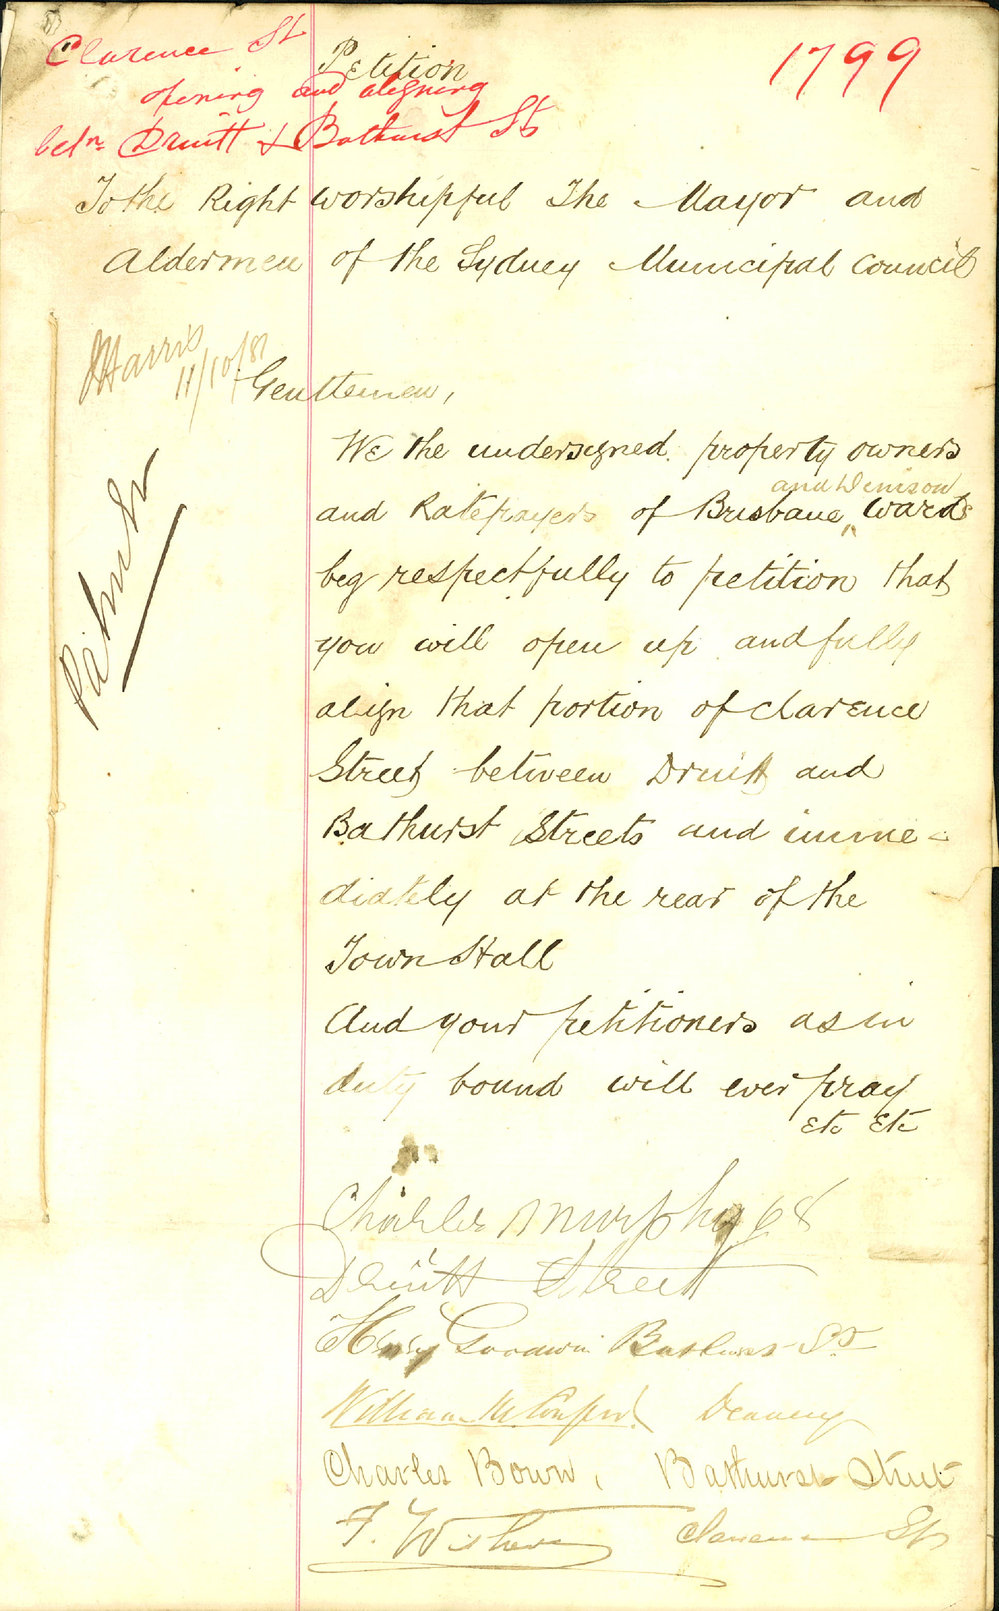 Clarence St
Petition
1799
opening and aligning
betn. Druitt & Bathurst St
To the Right Worshipful The Mayor and
Aldermen of the Sydney Municipal Council
J Harris
11/10/81
Gentlemen,
We the undersigned property owners
and Denison
and Ratepayers of Brisbane Wards
beg respectfully to petition that
you will open up and fully
align that portion of Clarence
Street between Druitt and
Bathurst Streets and imme-
diately at the rear of the
Town Hall
And your petitioners as in
duty bound will ever pray
etc etc
Charles Murphy 68
Druitt Street
Henry Goodwin Bathurst St
William
Charles Bown, Bathurst Street
F. Clarence St